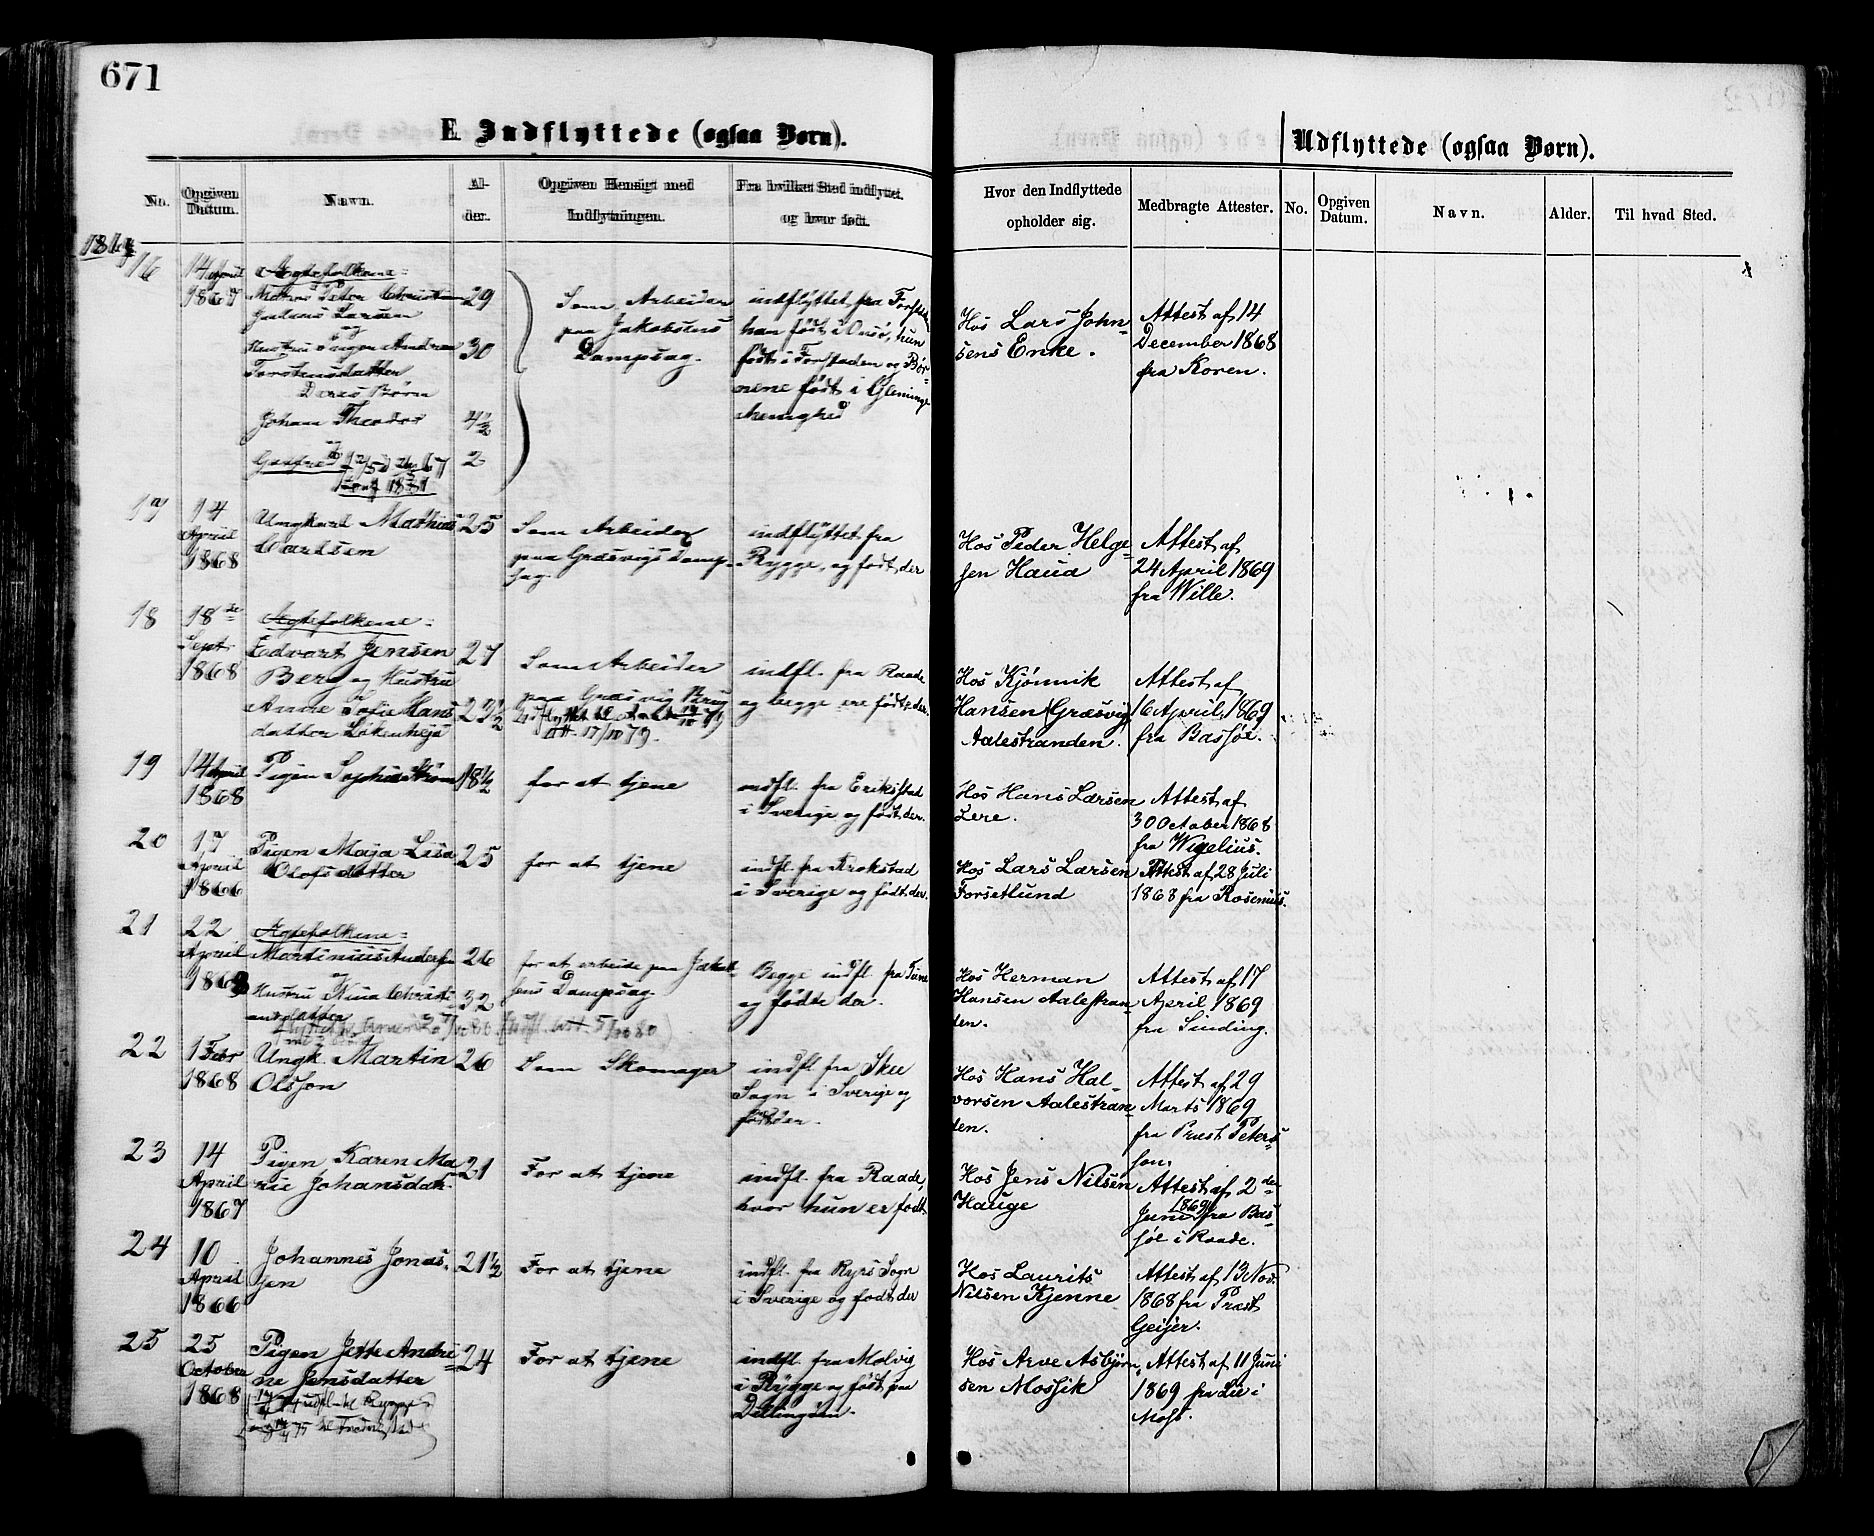 671
E Indflyttede (ogsaa Børn).
Udflyttede (ogsaa Børn).
No.
Opgiven Datum.
Navn.
Alder.
Opgiven Hensigt med Indflytningen.
Fra hvilket Sted indflyttet. og hvor født.
Hvor den Indflyttede opholder sig.
Medbragte Attester.
No.
Opgiven Datum.
Navn.
Alder.
Til hvad Sted.
16
14 April
1867
Ægtefolkene:
Peter Christian
Julius Larsen
og
Hustru Inger Andrea
Torstensdatter
Deres Børn
Johan Theodor
29
30
4½
2
Som Arbeider
paa Jakobsens
Dampsag.
indflyttet fra Forstaden
han født i Onsø, hun
født i Forstaden og Bør-
nene født i Glemminge
Menighed
Hos Lars John-
sens Enke.
Attest af 14
December 1868
fra Koren.
17
14
April
1868
Ungkarl Mathias
Carlsen
25
Som Arbeider
paa Græsvigs Damp-
sag.
indflyttet fra
Rygge, og født der
Hos Peder Helge-
sen Haua
Attest af
24 April 1869
fra Wille.
18
18de
Sept.
1868
Ægtefolkene:
Edvart Jensen
Berg og Hustru
Anne Sofie Hans-
datter Løkenheja
27
23½
Som Arbeider
paa Græsvig Brug
Att. 17/10 79.
indfl. fra Raade
og begge ere født der.
Hos Kjønnik
Hansen (Græsvig)
Aalestranden.
Attest af
16 April 1869
fra Bassøe.
19
14 April
1868
Pigen Sophie Strøm
18½
for at tjene
indfl. fra Erikstad
i Sverige og født der.
Hos Hans Larsen
Lere.
Attest af
30 October 1868
fra Wigelius.
20
17
April
1866
Pigen Maja Lisa
Olofsdatter
25
for at tjene
indfl. fra Krokstad
i Sverige og født der.
Hos Lars Larsen
Forsetlund
Attest af 28 Juli
1868 fra Rosenius.
21
22
April
1868
Ægtefolkene:
Martinius Andersen
og
Hustru Nina Christi-
ansdatter
26
32
for at arbeide paa Jakob-
sens Dampsag.
Begge indfl. fra Tune
og fødte der.
Hos Herman
Hansen Aalestran-
den.
Attest af 17
April 1869
fra Sinding.
22
1 Febr
1868
Ungk. Martin
Olsson
26
Som Skomager
indfl. fra Skee
Sogn i Sverige og
født der.
Hos Hans Hal-
vorsen Aalestran-
den.
Attest af 29
Marts 1869
fra Præst Peters-
son.
23
14
April
1867
Pigen Karen Ma-
rie Johansdatt.
21
For at tjene
indfl. fra Raade,
hvor hun er født
Hos Jens Nilsen
Hauge
Attest af 2den
Juni 1869 fra Bas-
søe i Raade.
24
10
April
1866
Johannes Jonas-
sen
21½
For at tjene
indfl. fra Ryrs Sogn
i Sverige og født der
Hos Laurits
Nilsen Kjenne
Attest af 13 Nov.
1868 fra Præst
Geijer.
25
25
October
1868
Pigen Jette Andri-
ne Jensdatter
udfl. til Rygge
24
For at tjene
indfl. fra Molvig
i Rygge og født paa
Dillingøen.
Hos Arve Asbjørn-
sen Mossik
Attest af 11 Juni
1869 fra Lie i
Moss.